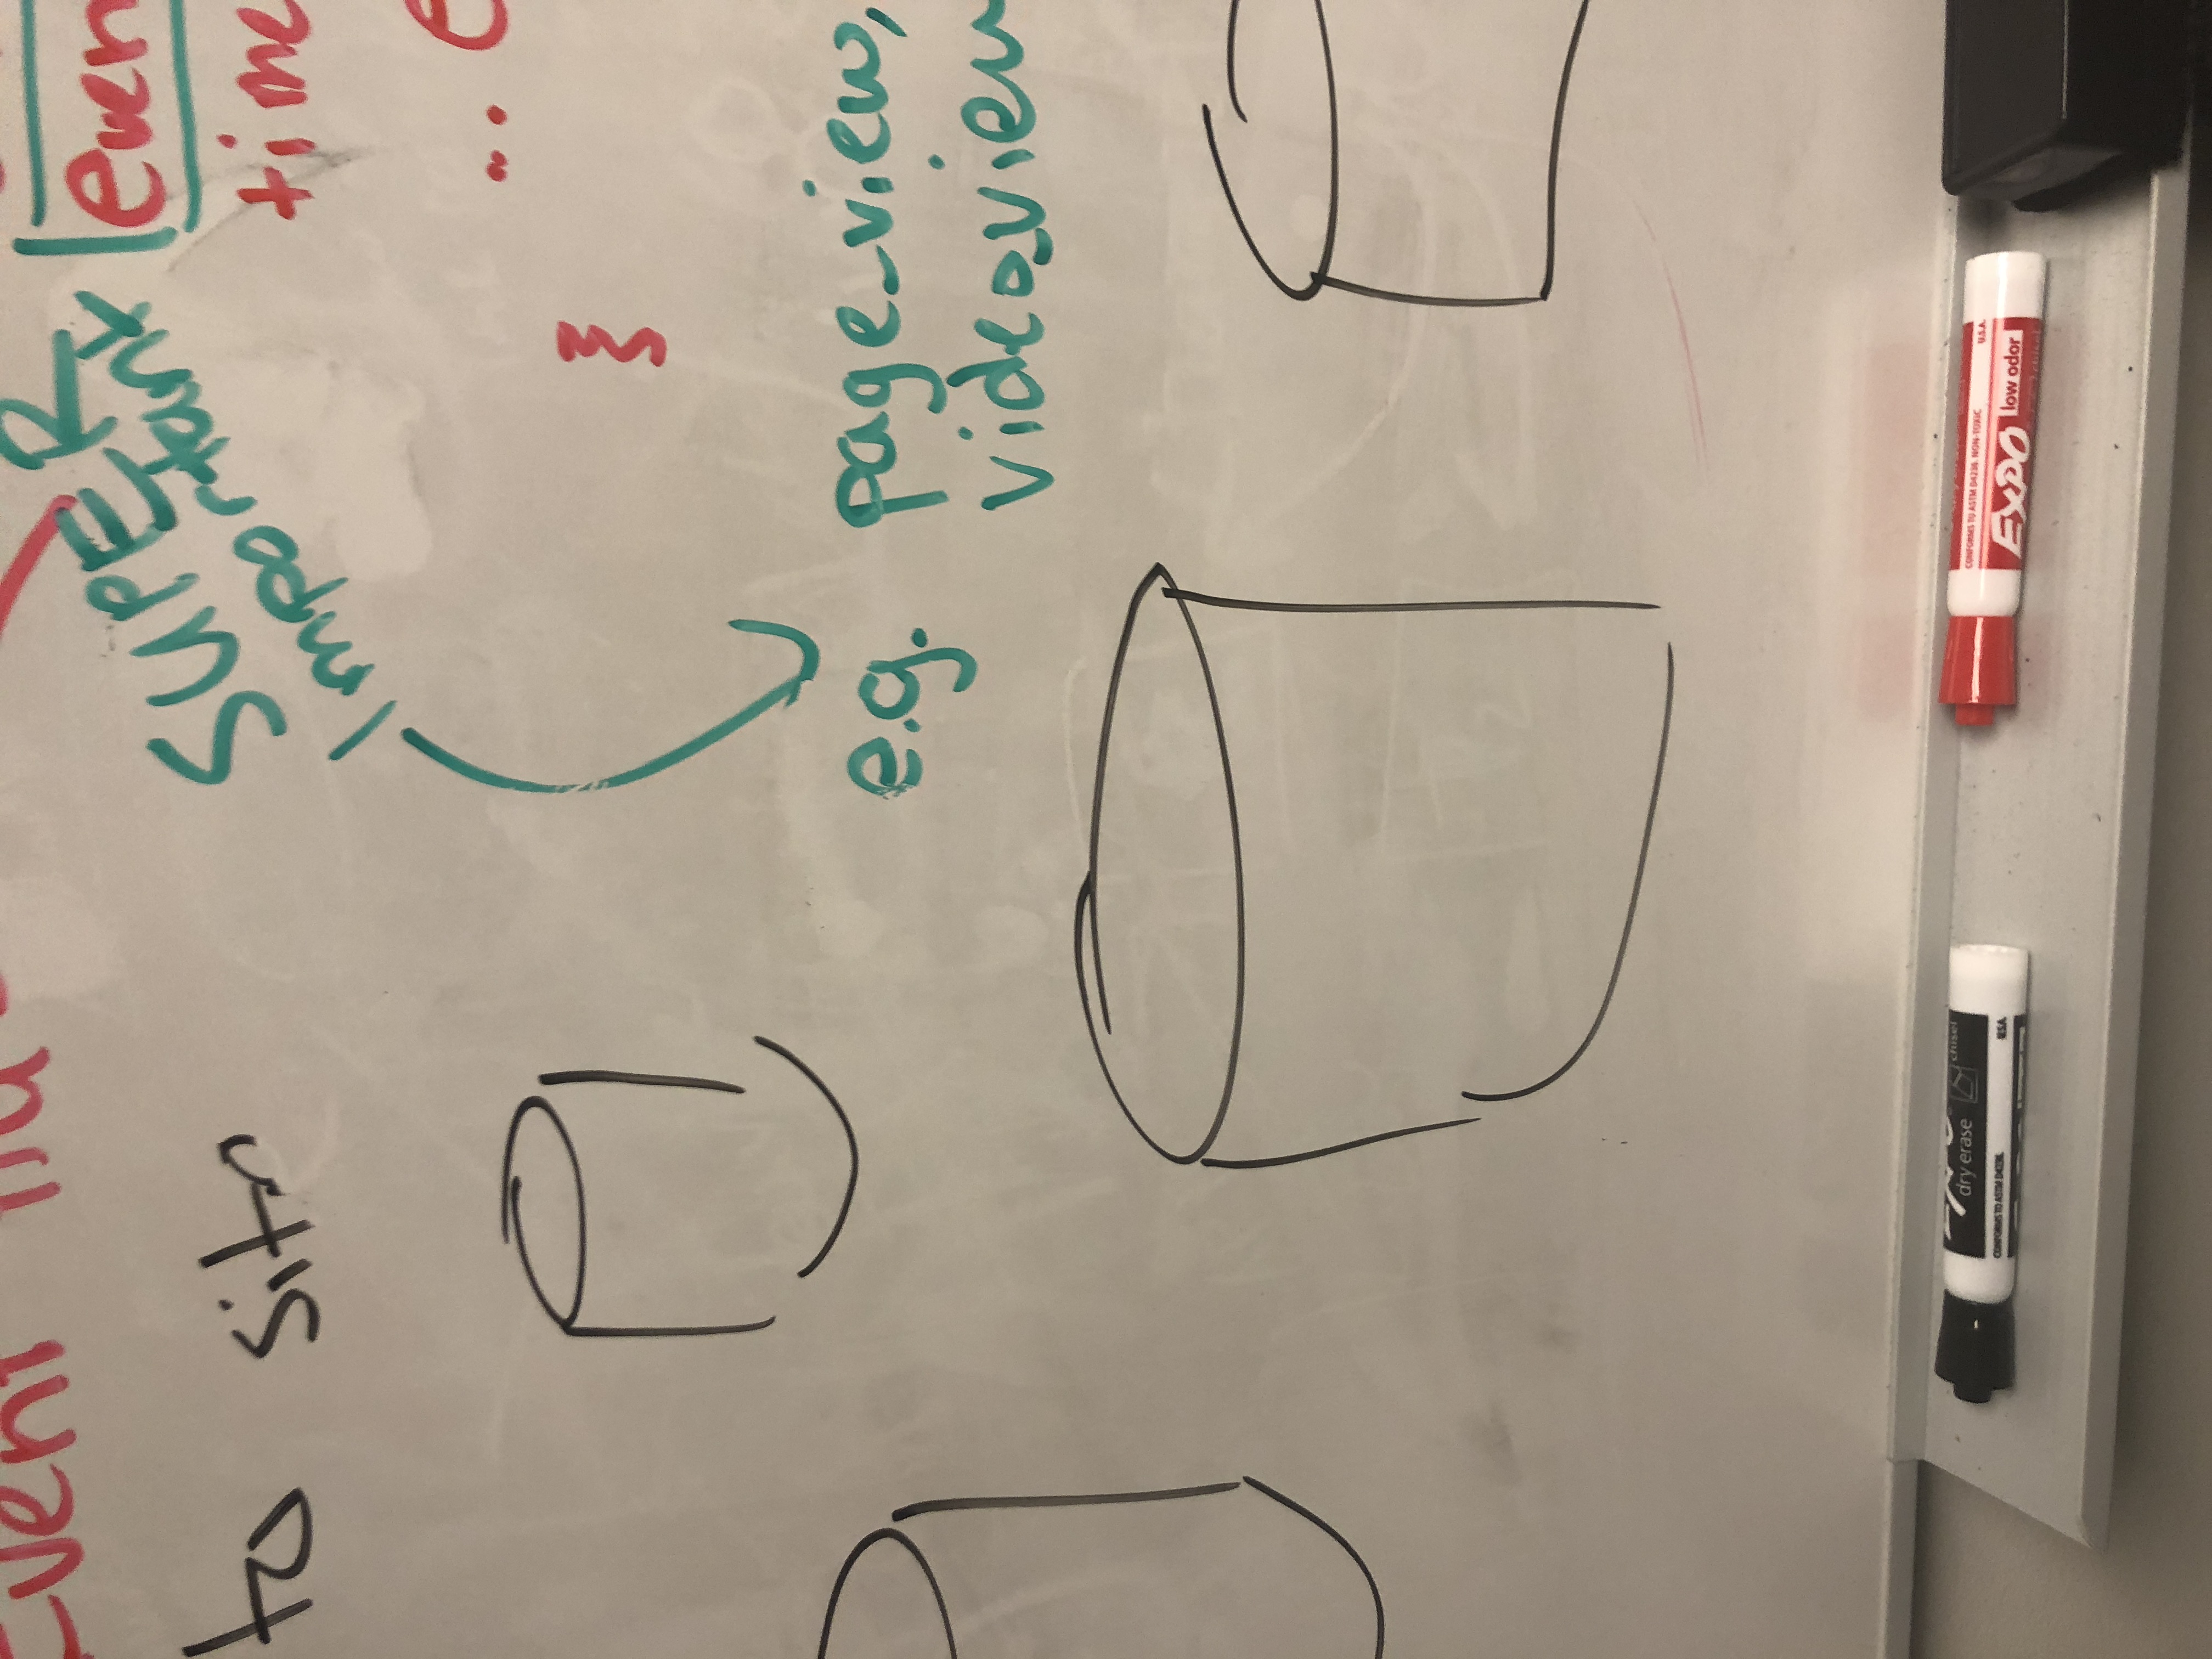 Event
SUPER
Important
to site
time
...
}
e.g. page_view,
video_view
dry erase
chisel
CONFORMS TO ASTM D4236
USA
CONFORMS TO ASTM D4236 NON-TOXIC
U.S.A.
EXPO low odor
chisel